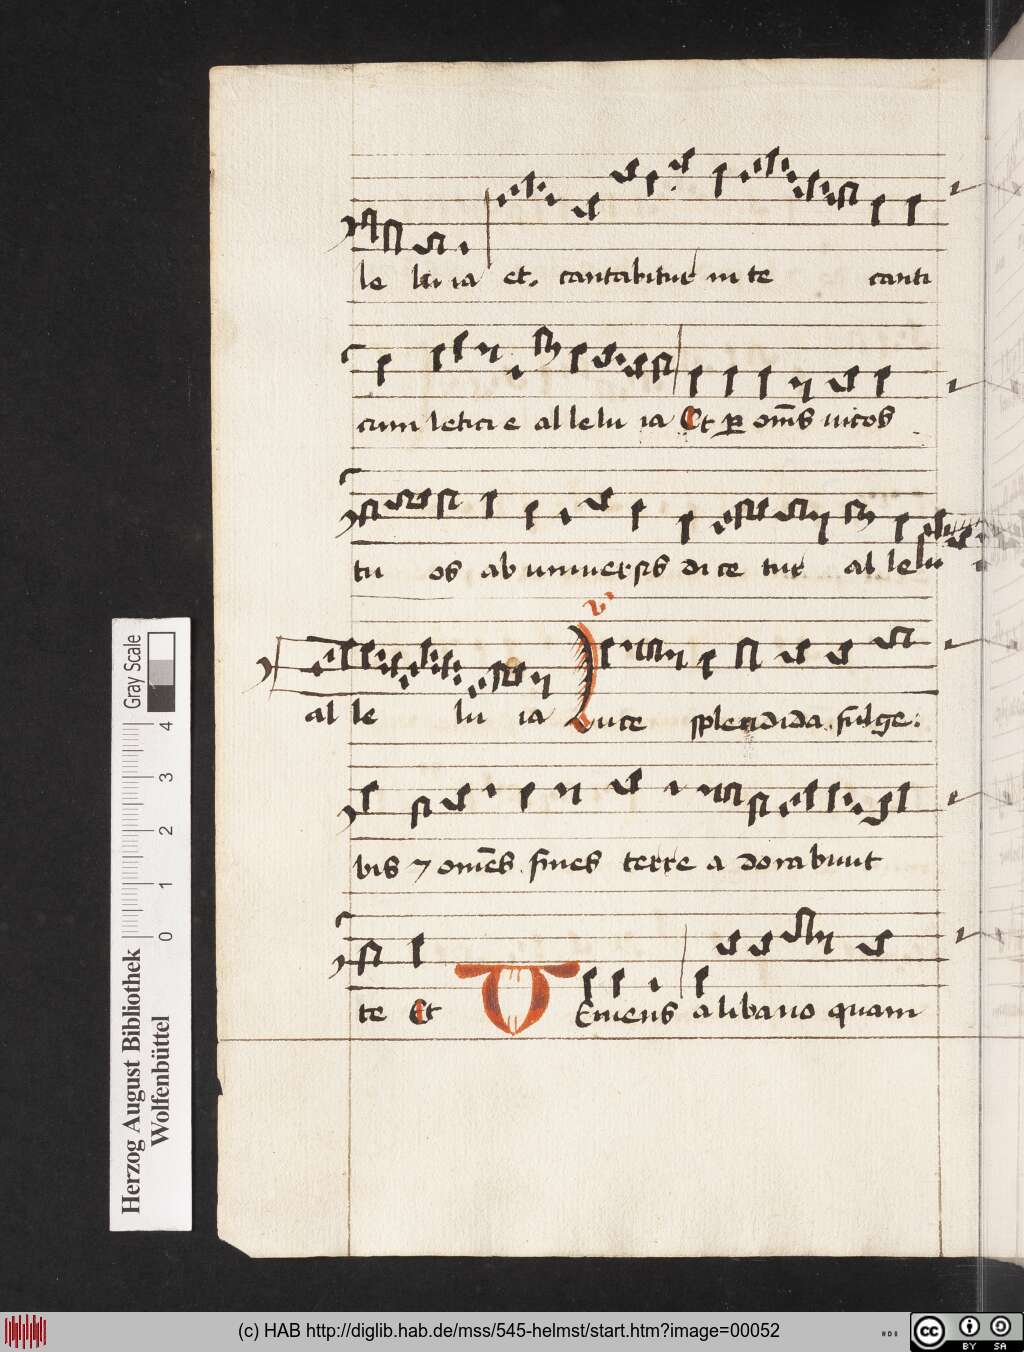 le lu ia et. cantabitur in te canti
cum leticie al le lu ia Et p om̄s vicos
tu os ab univerſis dice tur al le lu
v'
al le lu ia Luce ſplendida fulge:
bis ⁊ om̄es fines terre a dorabunt
te Et Veniens a libano quam
Gray Scale
4 3 2 1 0
Herzog August Bibliothek
Wolfenbüttel
(c) HAB http://diglib.hab.de/mss/545-helmst/start.htm?image=00052
cc BY SA